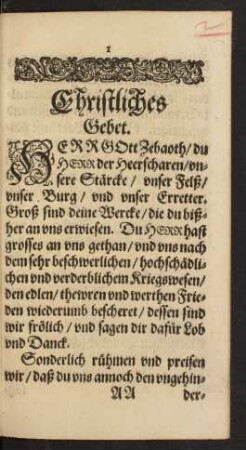 1
Christliches
Gebet.
HERR GOtt Zebaoth/ du
HERR der Heerscharen/ vn-
sere Stärcke/ vnser Felß/
vnser Burg/ vnd vnser Erretter.
Groß sind deine Wercke/ die du biß-
her an vns erwiesen. Du HERR hast
grosses an vns gethan/ vnd vns nach
dem sehr beschwerlichen/ hochschädli-
chen vnd verderblichem Kriegswesen/
den edlen/ thewren vnd werthen Frie-
den wiederumb bescheret/ dessen sind
wir frölich/ vnd sagen dir dafür Lob
vnd Danck.
Sonderlich rühmen vnd preisen
wir/ daß du vns annoch den vngehin-
AA der-